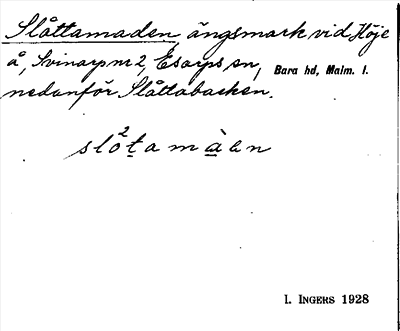 Slåttamaden ängsmark vid Höje
å, Svinarp nr 2, Esarps sn, Bara hd, Malm. l.
nedanför Slåttabacken.
slo²tamàen
I. INGERS 1928